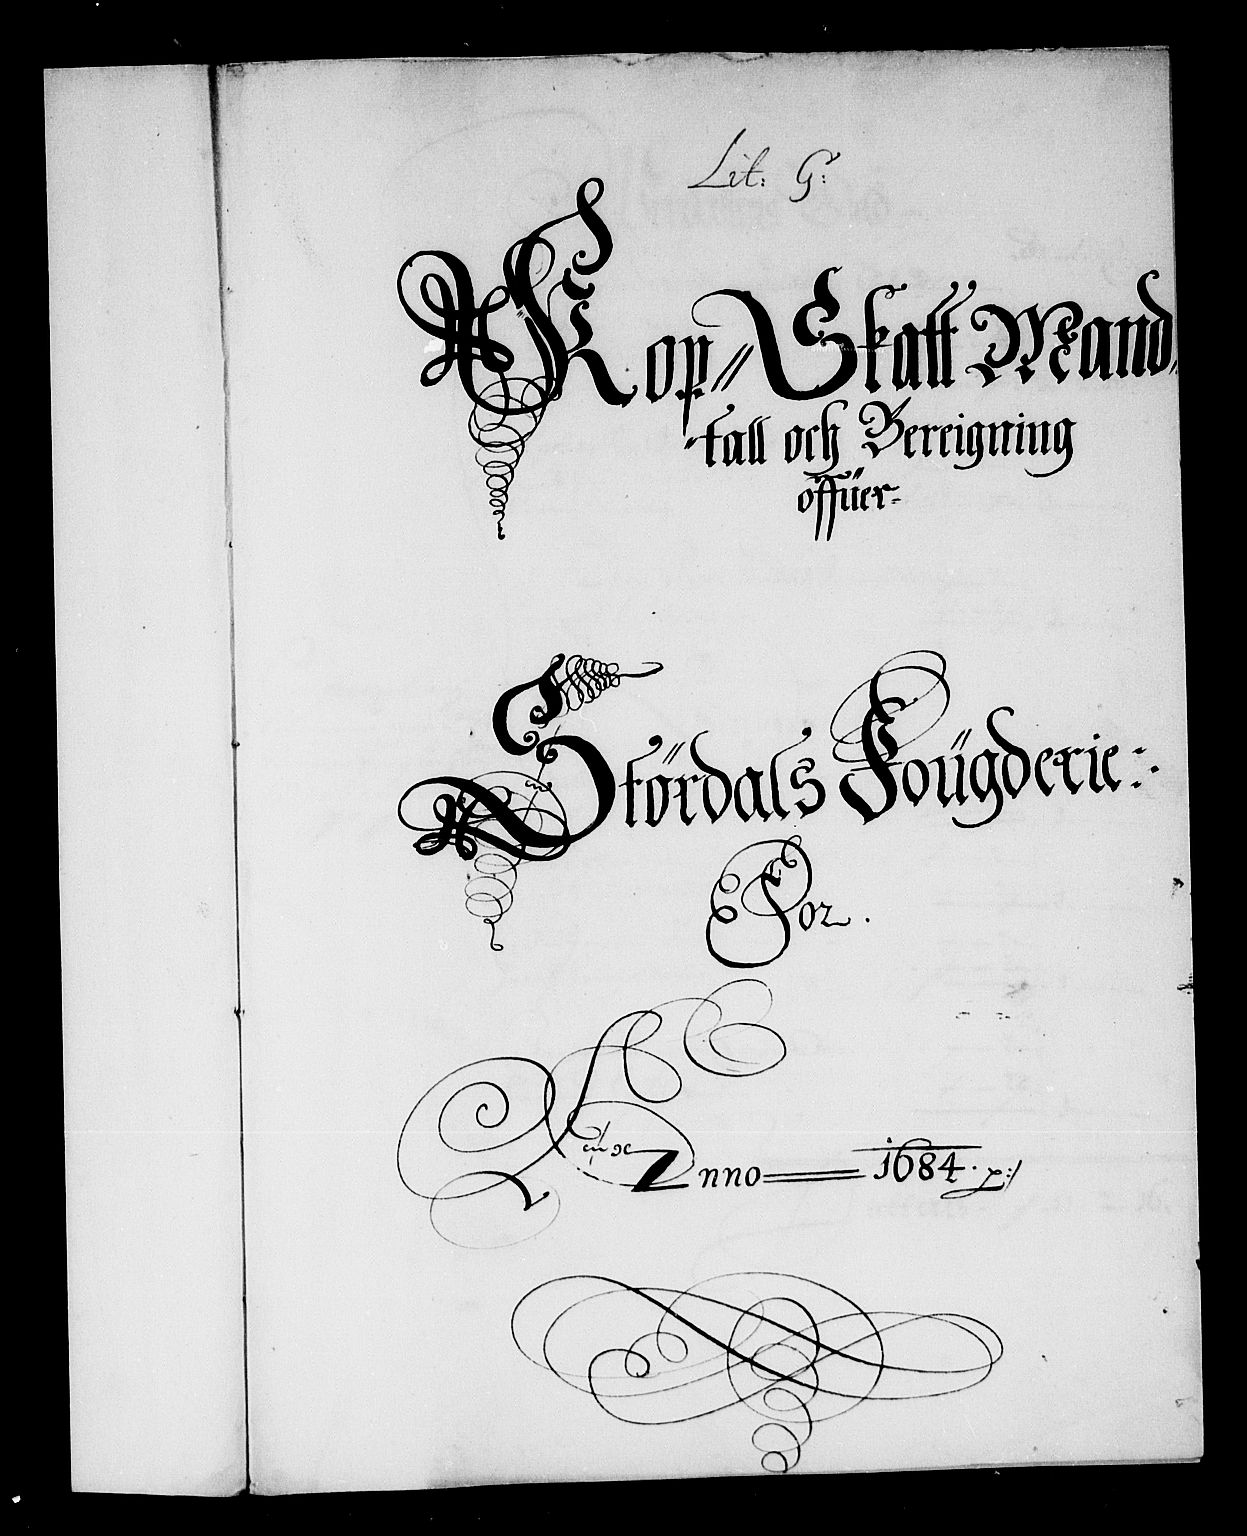 Lit: G:
Kop= Skatt Mand=
=tall och Bereigning
offüer=
Stördals Foügderie:
For.
Anno 1684.